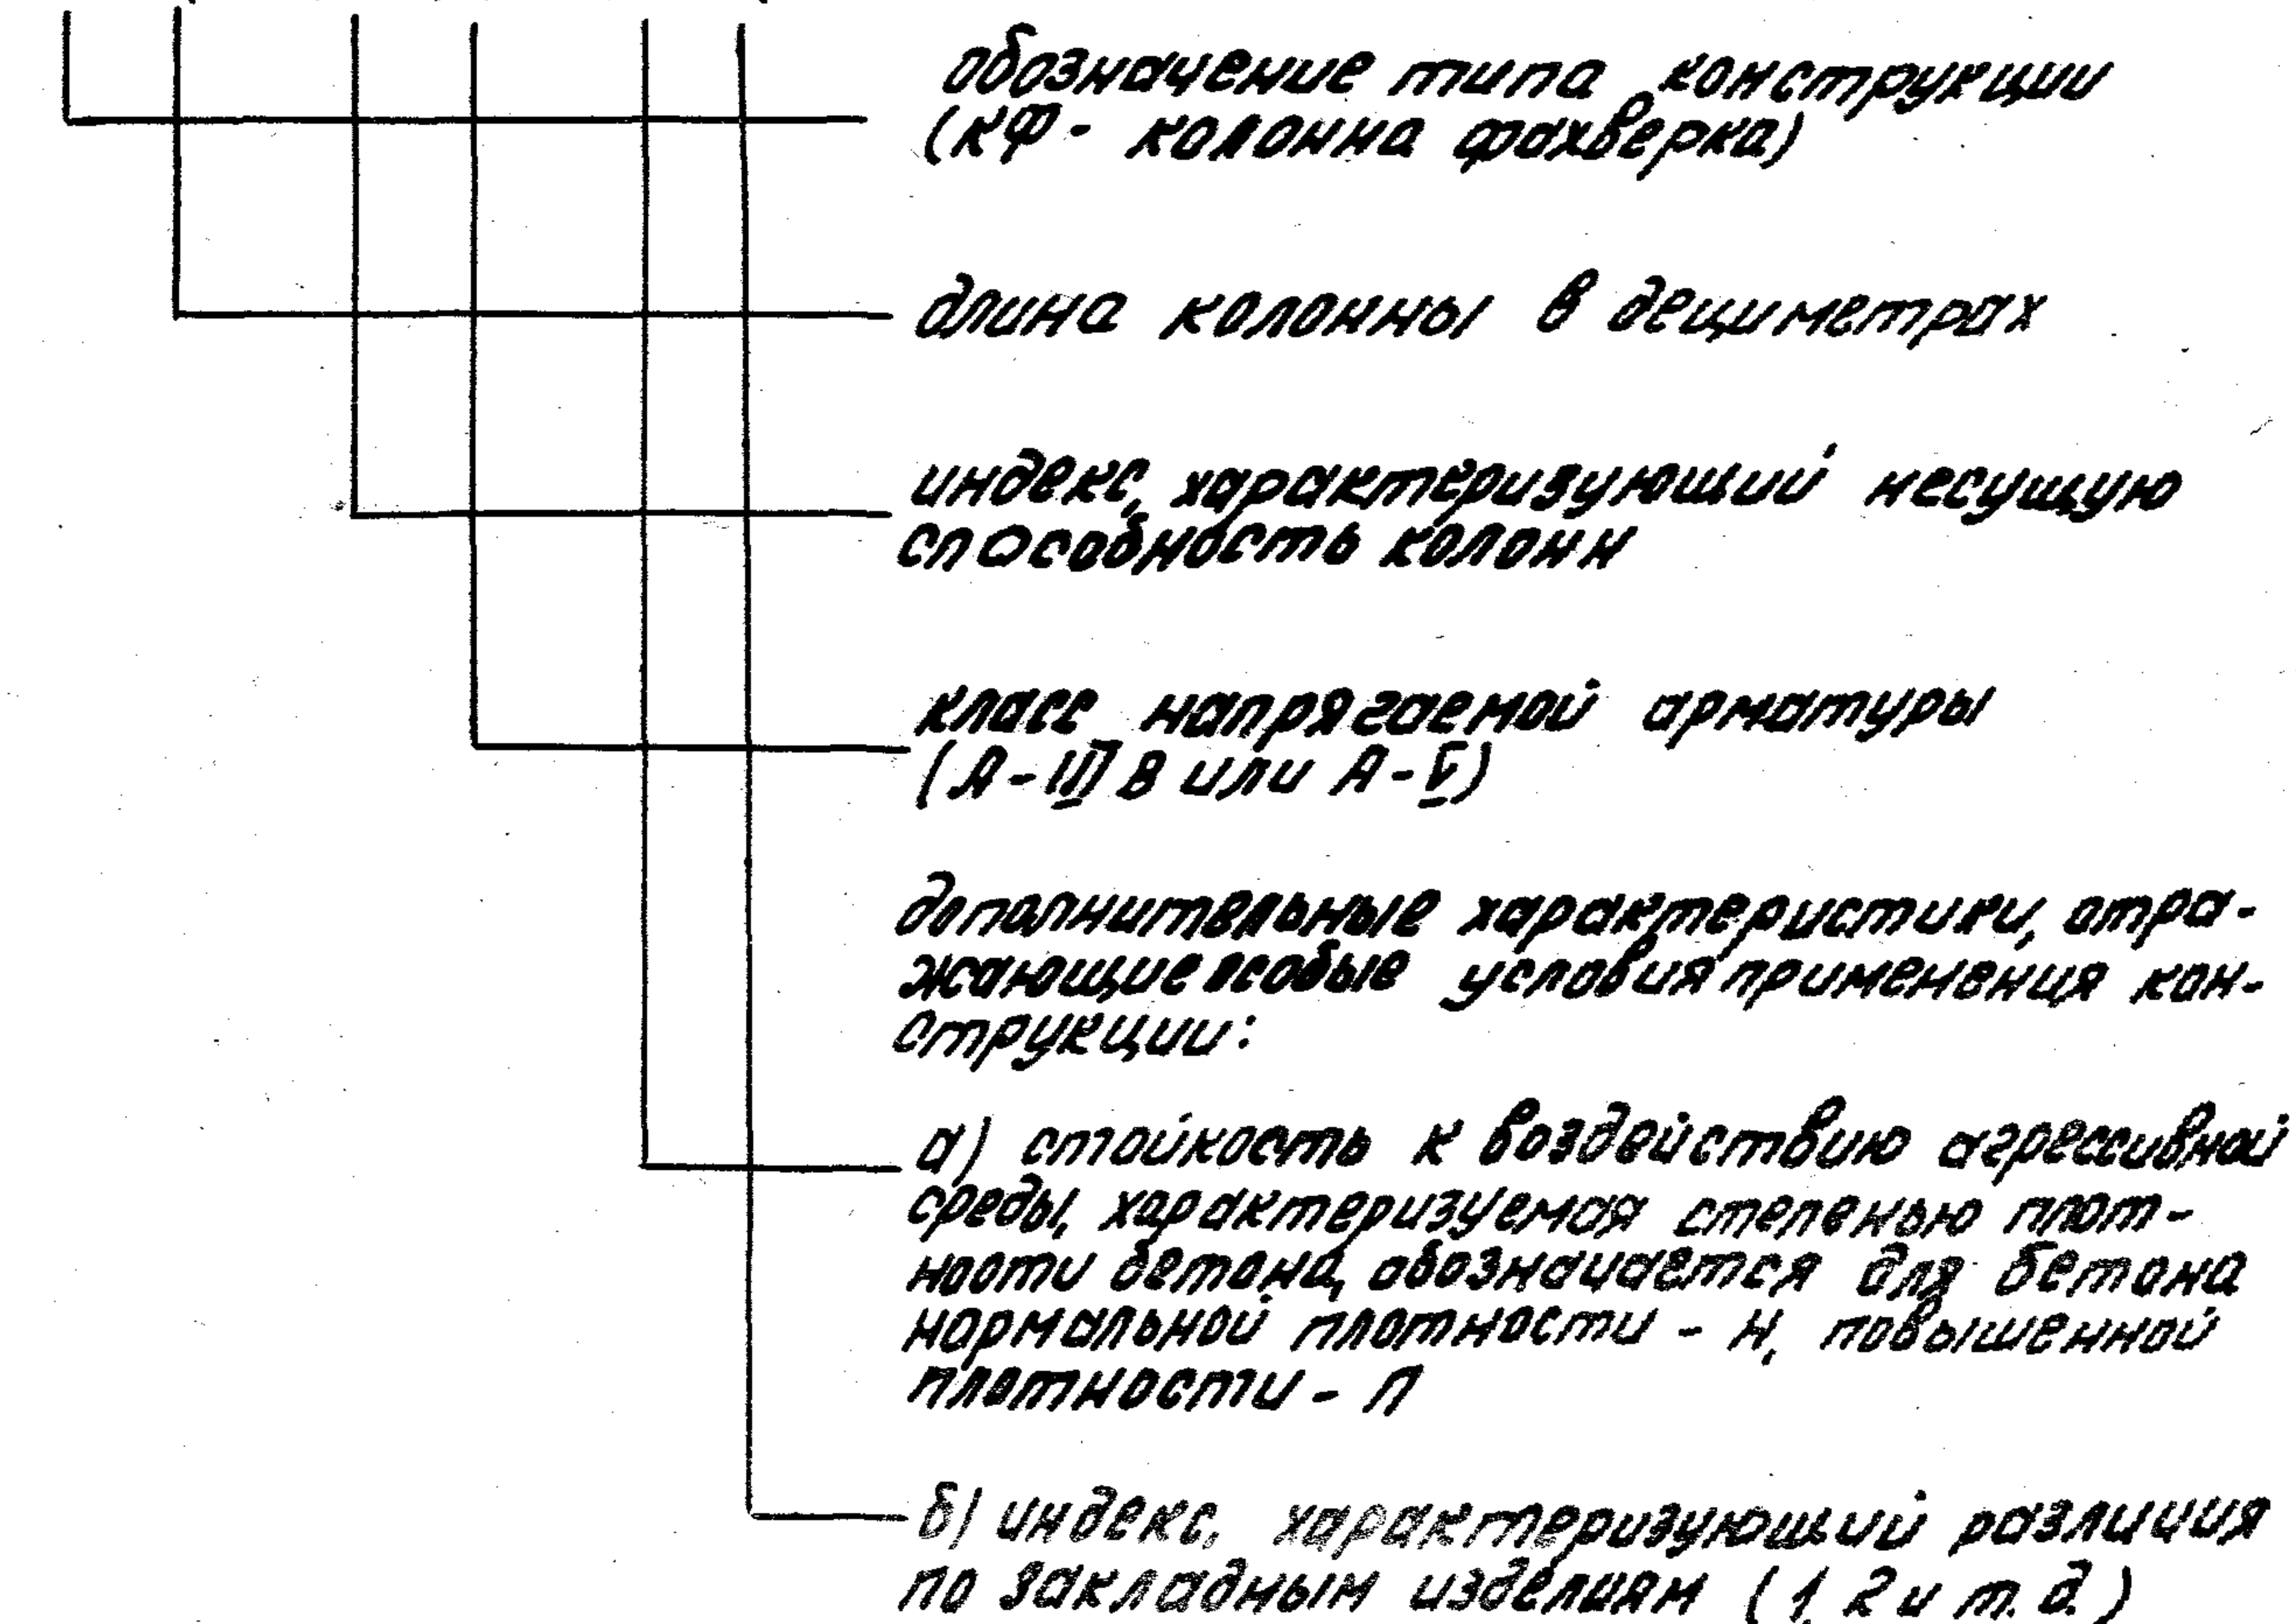 обозначение типа конструкции
(КФ - колонна фахверка)
длина колонны в дециметрах
индекс, характеризующий несущую
способность колонн
класс напрягаемой арматуры
(А-IIIв или А-V)
дополнительные характеристики, отра-
жающие особые условия применения кон-
струкции:
а) стойкость к воздействию агрессивной
среды, характеризуемая степенью плот-
ности бетона, обозначается для бетона
нормальной плотности - Н, повышенной
плотности - П
б) индекс, характеризующий различия
по закладным изделиям (1, 2 и т. д.)